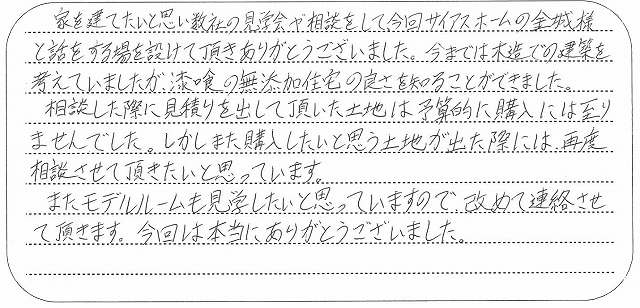 家を建てたいと思い数社の見学会や相談をして、今回サイアスホームの金城様
と話をする場を設けて頂きありがとうございました。今までは木造での建築を
考えていましたが漆喰の無添加住宅の良さを知ることができました。
相談した際に見積りを出して頂いた土地は予算的に購入には至り
ませんでした。しかしまた購入したいと思う土地が出た際には、再度
相談させて頂きたいと思っています。
またモデルルームも見学したいと思っていますので、改めて連絡させ
て頂きます。今回は本当にありがとうございました。